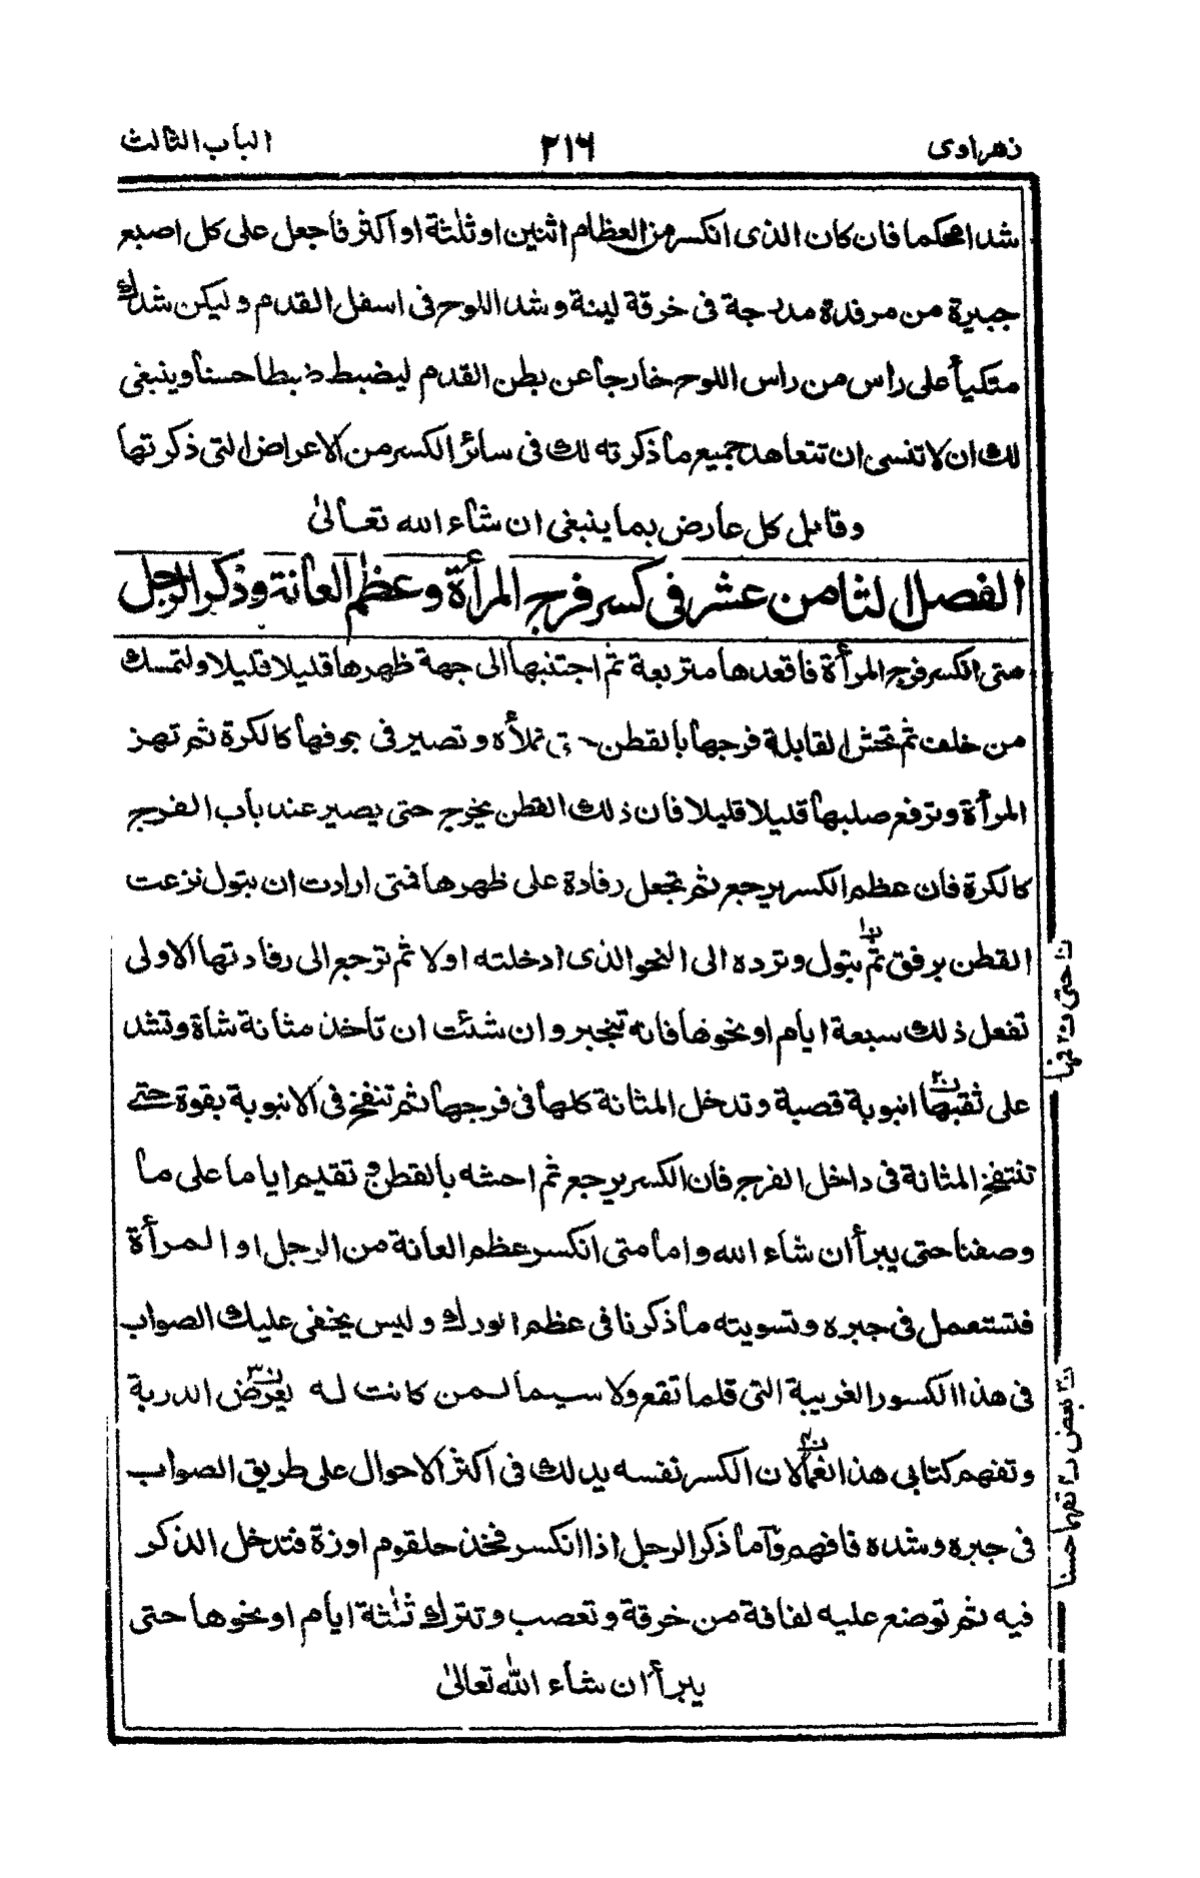 زهراوى ٢١٦ الباب الثالث
شدا محكما فان كان الذى انكسر من العظام اثنين او ثلثة او اكثر فاجعل على كل اصبع
جبيرة من مرفدة مدرجة فى خرقة لينة و شد اللوح فى اسفل القدم و ليكن شدك
متكيأ على راس من راس اللوح خارجا عن بطن القدم ليضبط ضبطا حسنا وينبغى
لك ان لا تنسى ان تتعاهد جميع ما ذكرته لك فى سائر الكسر من الاعراض التى ذكرتها
وقابل كل عارض بما ينبغى ان شاء الله تعالىٰ
الفصل الثامن عشر فى كسر فرج المرأة و عظم العانة وذكر الرجل
متى الكسر فرج المرأة فاقعدها متربعة ثم اجتنبها الى جهة ظهرها قليلا قليلا ولتمسك
من خلف ثم تحش القابلة فرجها بالقطن تملأه و تصير فى جوفها كالكرة ثم تهز
المرأة وترفع صلبها قليلا قليلا فان ذلك القطن يخرج حتى يصير عند باب الفرج
كالكرة فان عظم الكسر يرجع ثم تجعل رفادة على ظهرها فمتى ارادت ان تبول نزعت
القطن برفق ثم تبول وترده الى النحو الذى ادخلته اولا ثم ترجع الى رفادتها الاولى
تفعل ذلك سبعة ايام او نحوها فانه تنجبر وان شئت ان تاخذ مثانة شاة وتشد
على ثقبها انبوبة قصبة وتدخل المثانة كلها فى فرجها ثم تنفخ فى الانبوبة بقوة حتى
تنتفخ المثانة فى داخل الفرج فان الكسر يرجع ثم احشه بالقطن و تقيم اياما على ما
وصفنا حتى يبرأ ان شاء الله واما متى انكسر عظم العانة من الرجل او المرأة
فتستعمل فى جبره وتسويته ما ذكرنا فى عظم الورك وليس يخفى عليك الصواب
فى هذا الكسور الغريبة التى قلما تقع ولا سيما لمن كانت له بعرض الدربة
وتفهم كتابى هذا لان الكسر نفسه يدلك فى اكثر الاحوال على طريق الصواب
فى جبره وشده فافهم وآما ذكر الرجل اذا انكسر فخذ حلقوم اوزة فتدخل الذكر
فيه ثم توضع عليه لفافة من خرقة وتعصب وتترك ثلثة ايام او نحوها حتى
يبرأ ان شاء الله تعالىٰ